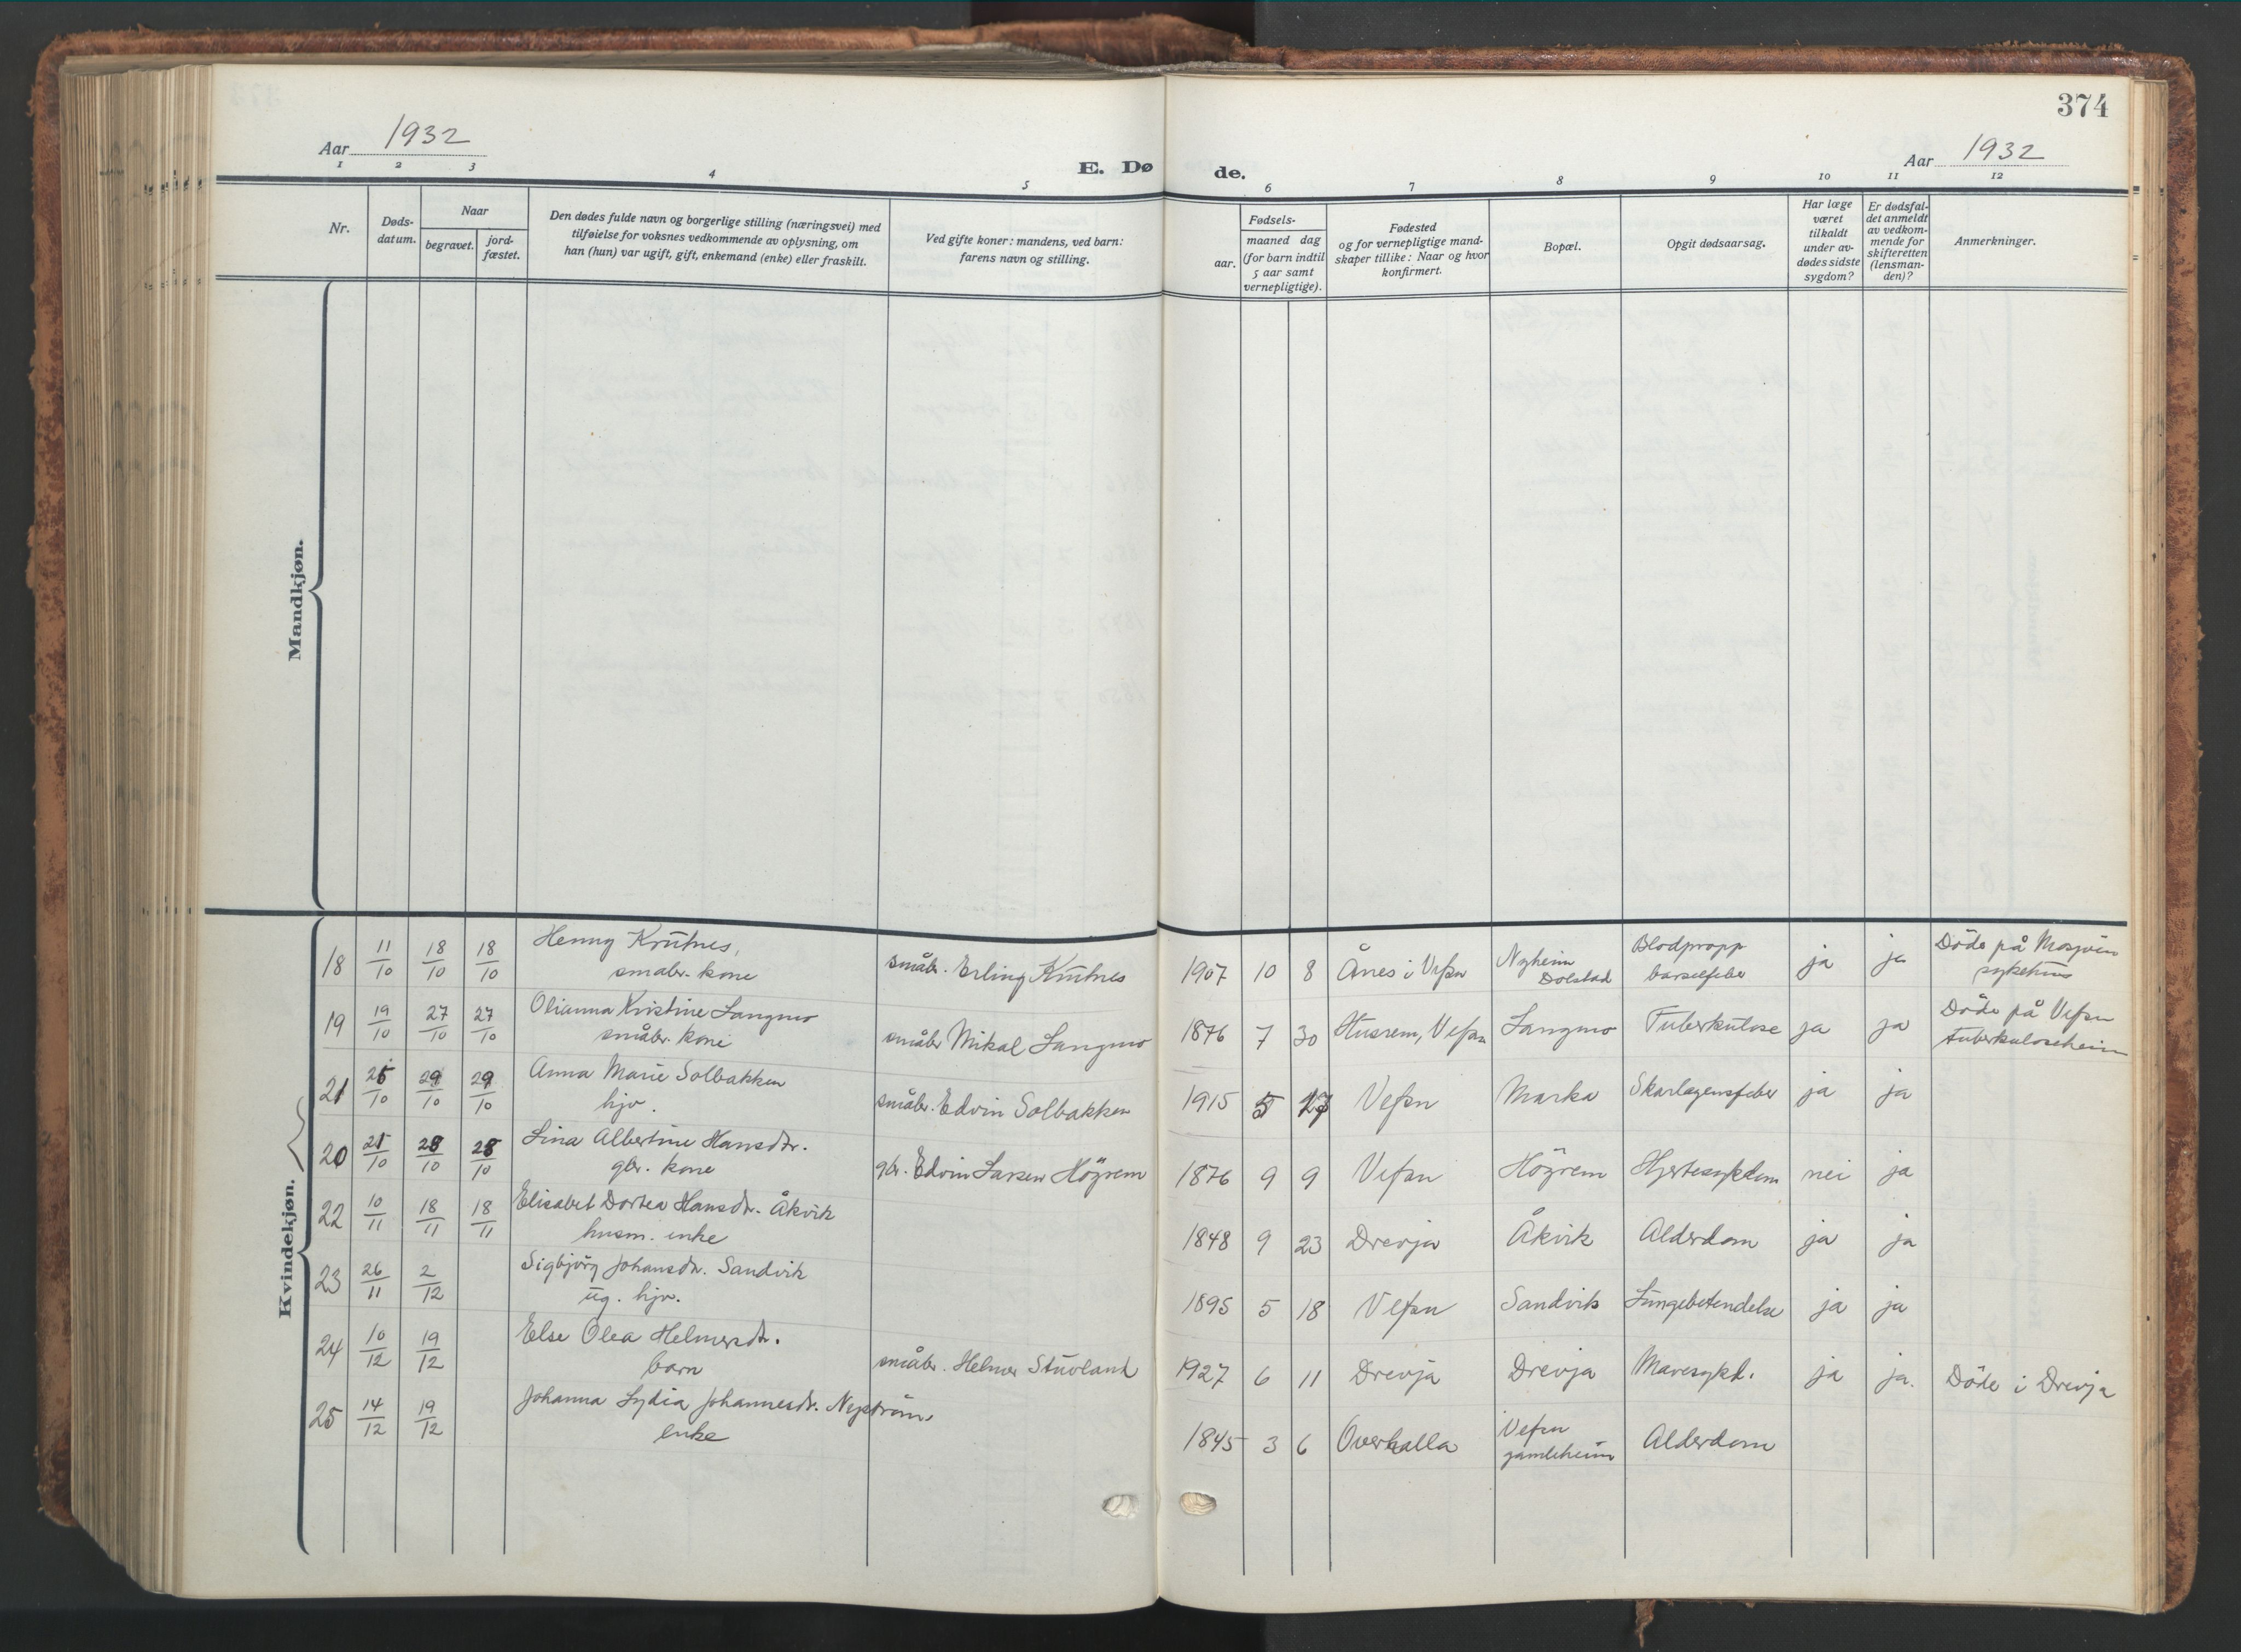 374
Aar 1932
E. Døde.
Aar 1932
1 2 3 4 5 6 7 8 9 10 11 12
Nr.
Døds-
datum.
Naar
begravet.
jord-
fæstet.
Den dødes fulde navn og borgerlige stilling (næringsvei) med
tilføielse for voksnes vedkommende av oplysning, om
han (hun) var ugift, gift, enkemand (enke) eller fraskilt.
Ved gifte koner: mandens, ved barn:
farens navn og stilling.
Fødsels-
aar.
maaned dag
(for barn indtil
5 aar samt
vernepligtige).
Fødested
og for vernepligtige mand-
skaper tillike: Naar og hvor
konfirmert.
Bopæl.
Opgit dødsaarsag.
Har læge
været
tilkaldt
under av-
dødes sidste
sygdom?
Er dødsfal-
det anmeldt
av vedkom-
mende for
skifteretten
(lensman-
den)?
Anmerkninger.
Mandkjøn.
Kvindekjøn.
18 11/10 18/10 18/10 Henny Krutnes,
småbr. kone
småbr. Erling Krutnes 1907 10 8 Ånes i Vefsn Nyheim
Dolstad
Blodpropp
barselfeber
ja ja Döde på Mosjöen
sykehus
19 19/10 27/10 27/10 Olianna Kristine Langmo
småbr. kone
småbr Mikal Langmo 1876 7 30 Husrem, Vefsn Langmo Tuberkulose ja ja Döde på Vefsn
tuberkuloseheim
21 25/10 29/10 29/10 Anna Marie Solbakken
hjv.
småbr. Edvin Solbakken 1915 5 27 Vefsn Marka Skarlagensfeber ja ja
20 21/10 28/10 28/10 Lina Albertine Hansdtr.
gbr. kone
gbr. Edvin Larsen Högrem 1876 9 9 Vefsn Högrem Hjertesykdom nei ja
22 10/11 18/11 18/11 Elisabet Dortea Hansdtr. Åkvik
husm. enke
1848 9 23 Drevja Åkvik Alderdom ja ja
23 26/11 2/12 Sigbjörg Johansdtr. Sandvik
ug. hjv.
1895 5 18 Vefsn Sandvik Lungebetendelse ja ja
24 10/12 19/12 Else Olea Helmersdtr.
barn
småbr. Helmer Stuvland 1927 6 11 Drevja Drevja Mavesykd. ja ja. Döde i Drevja
25 14/12 19/12 Johanna Lydia Johannesdtr. Nyström
enke
1845 3 6 Overhalla Vefsn
gamleheim
Alderdom